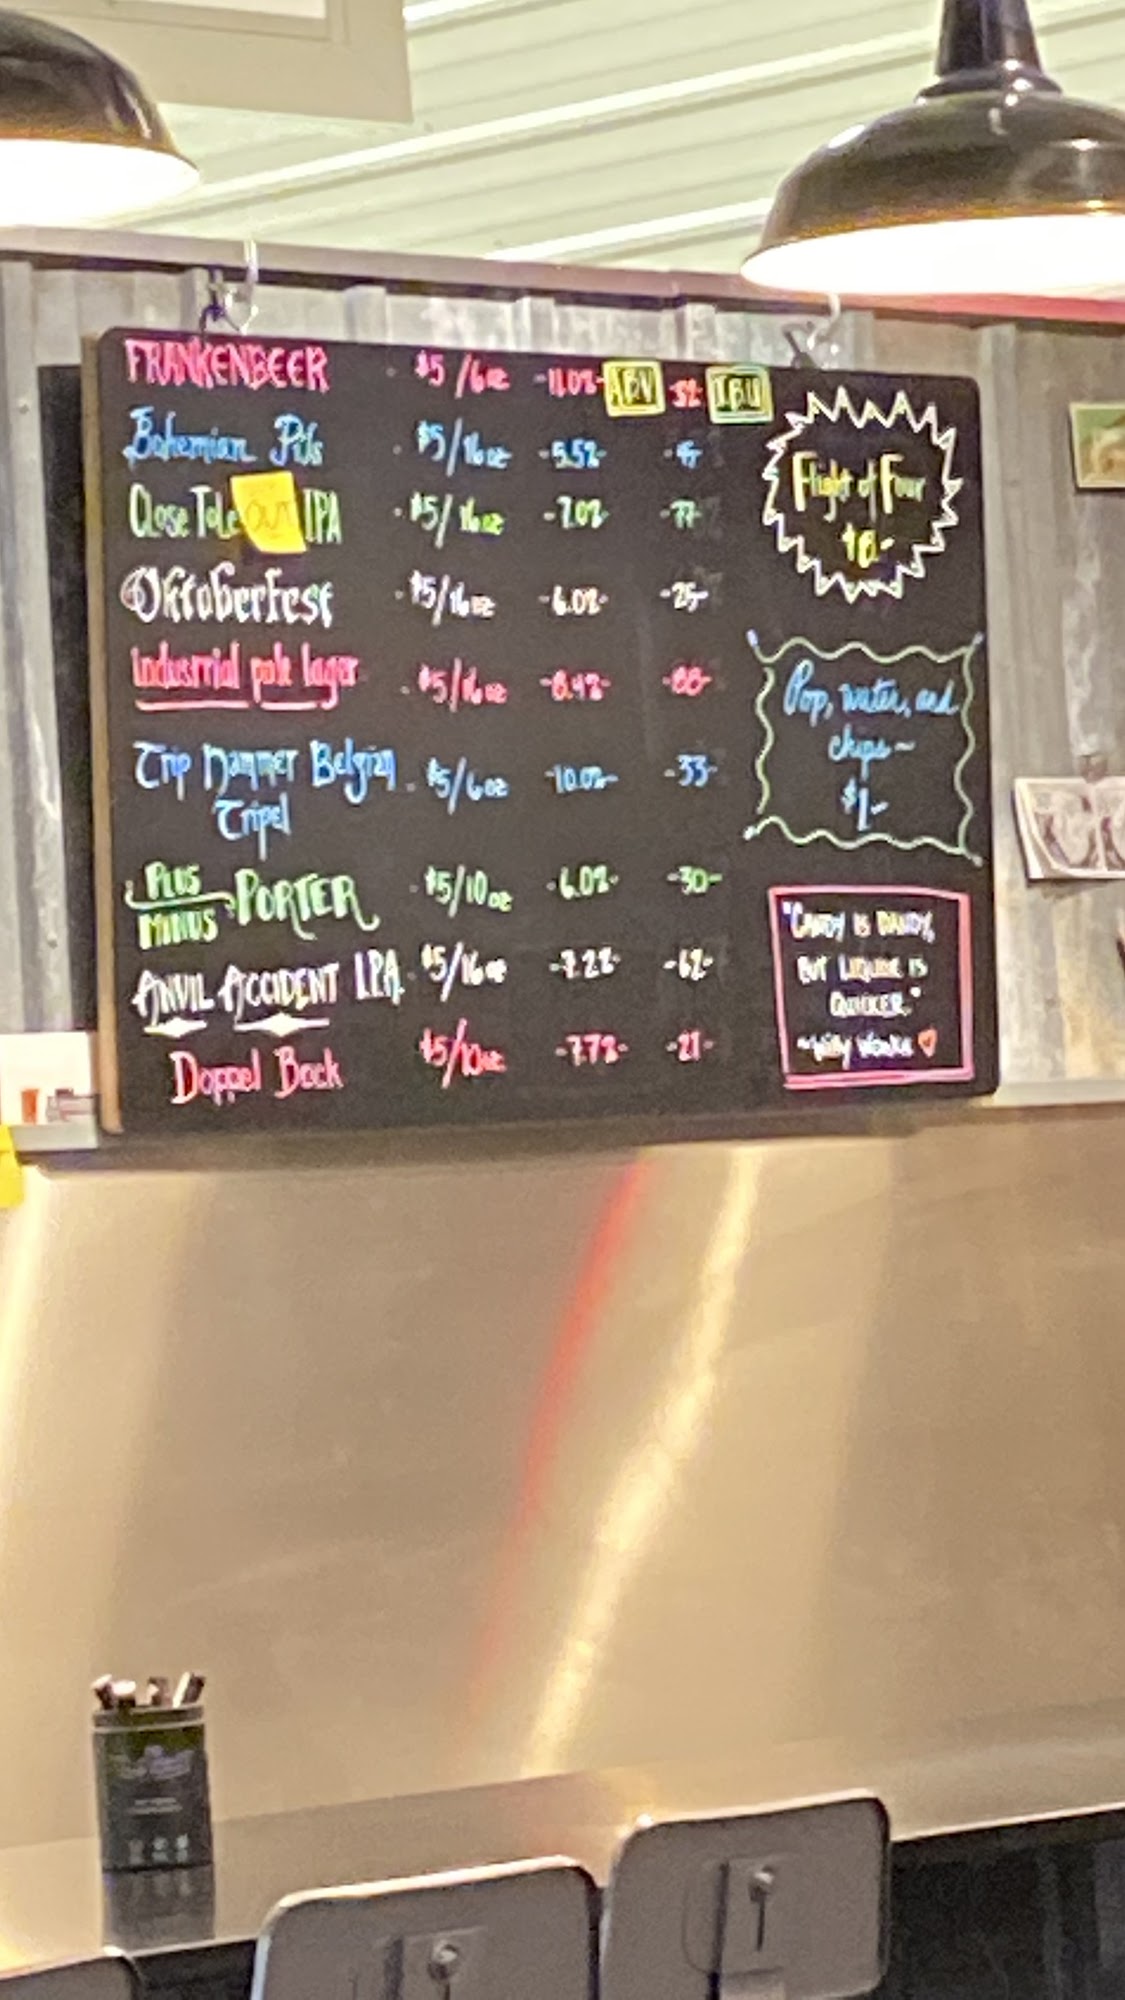 FRANKENBEER $5/6oz -11.0%- ABV 32 IBU
Bohemian Pils $5/16oz -5.5%-
Close Tole OUT IPA $5/16oz -7.0%- -77-
Oktoberfest $5/16oz -6.0%- -25-
industrial pale lager $5/16oz -8.4%- -88-
Trip Hammer Belgian $5/6oz -10.0%- -33-
Tripel
PLUS MINUS PORTER $5/10oz -6.0%- -30-
ANVIL ACCIDENT I.P.A. $5/16oz -7.2%- -62-
Doppel Bock $5/10oz -7.7%- -21-
Flight of Four
Pop, water, and
chips ~
$1-
"CANDY IS DANDY,
BUT LIQUOR IS
QUICKER."
~Willy Wonka